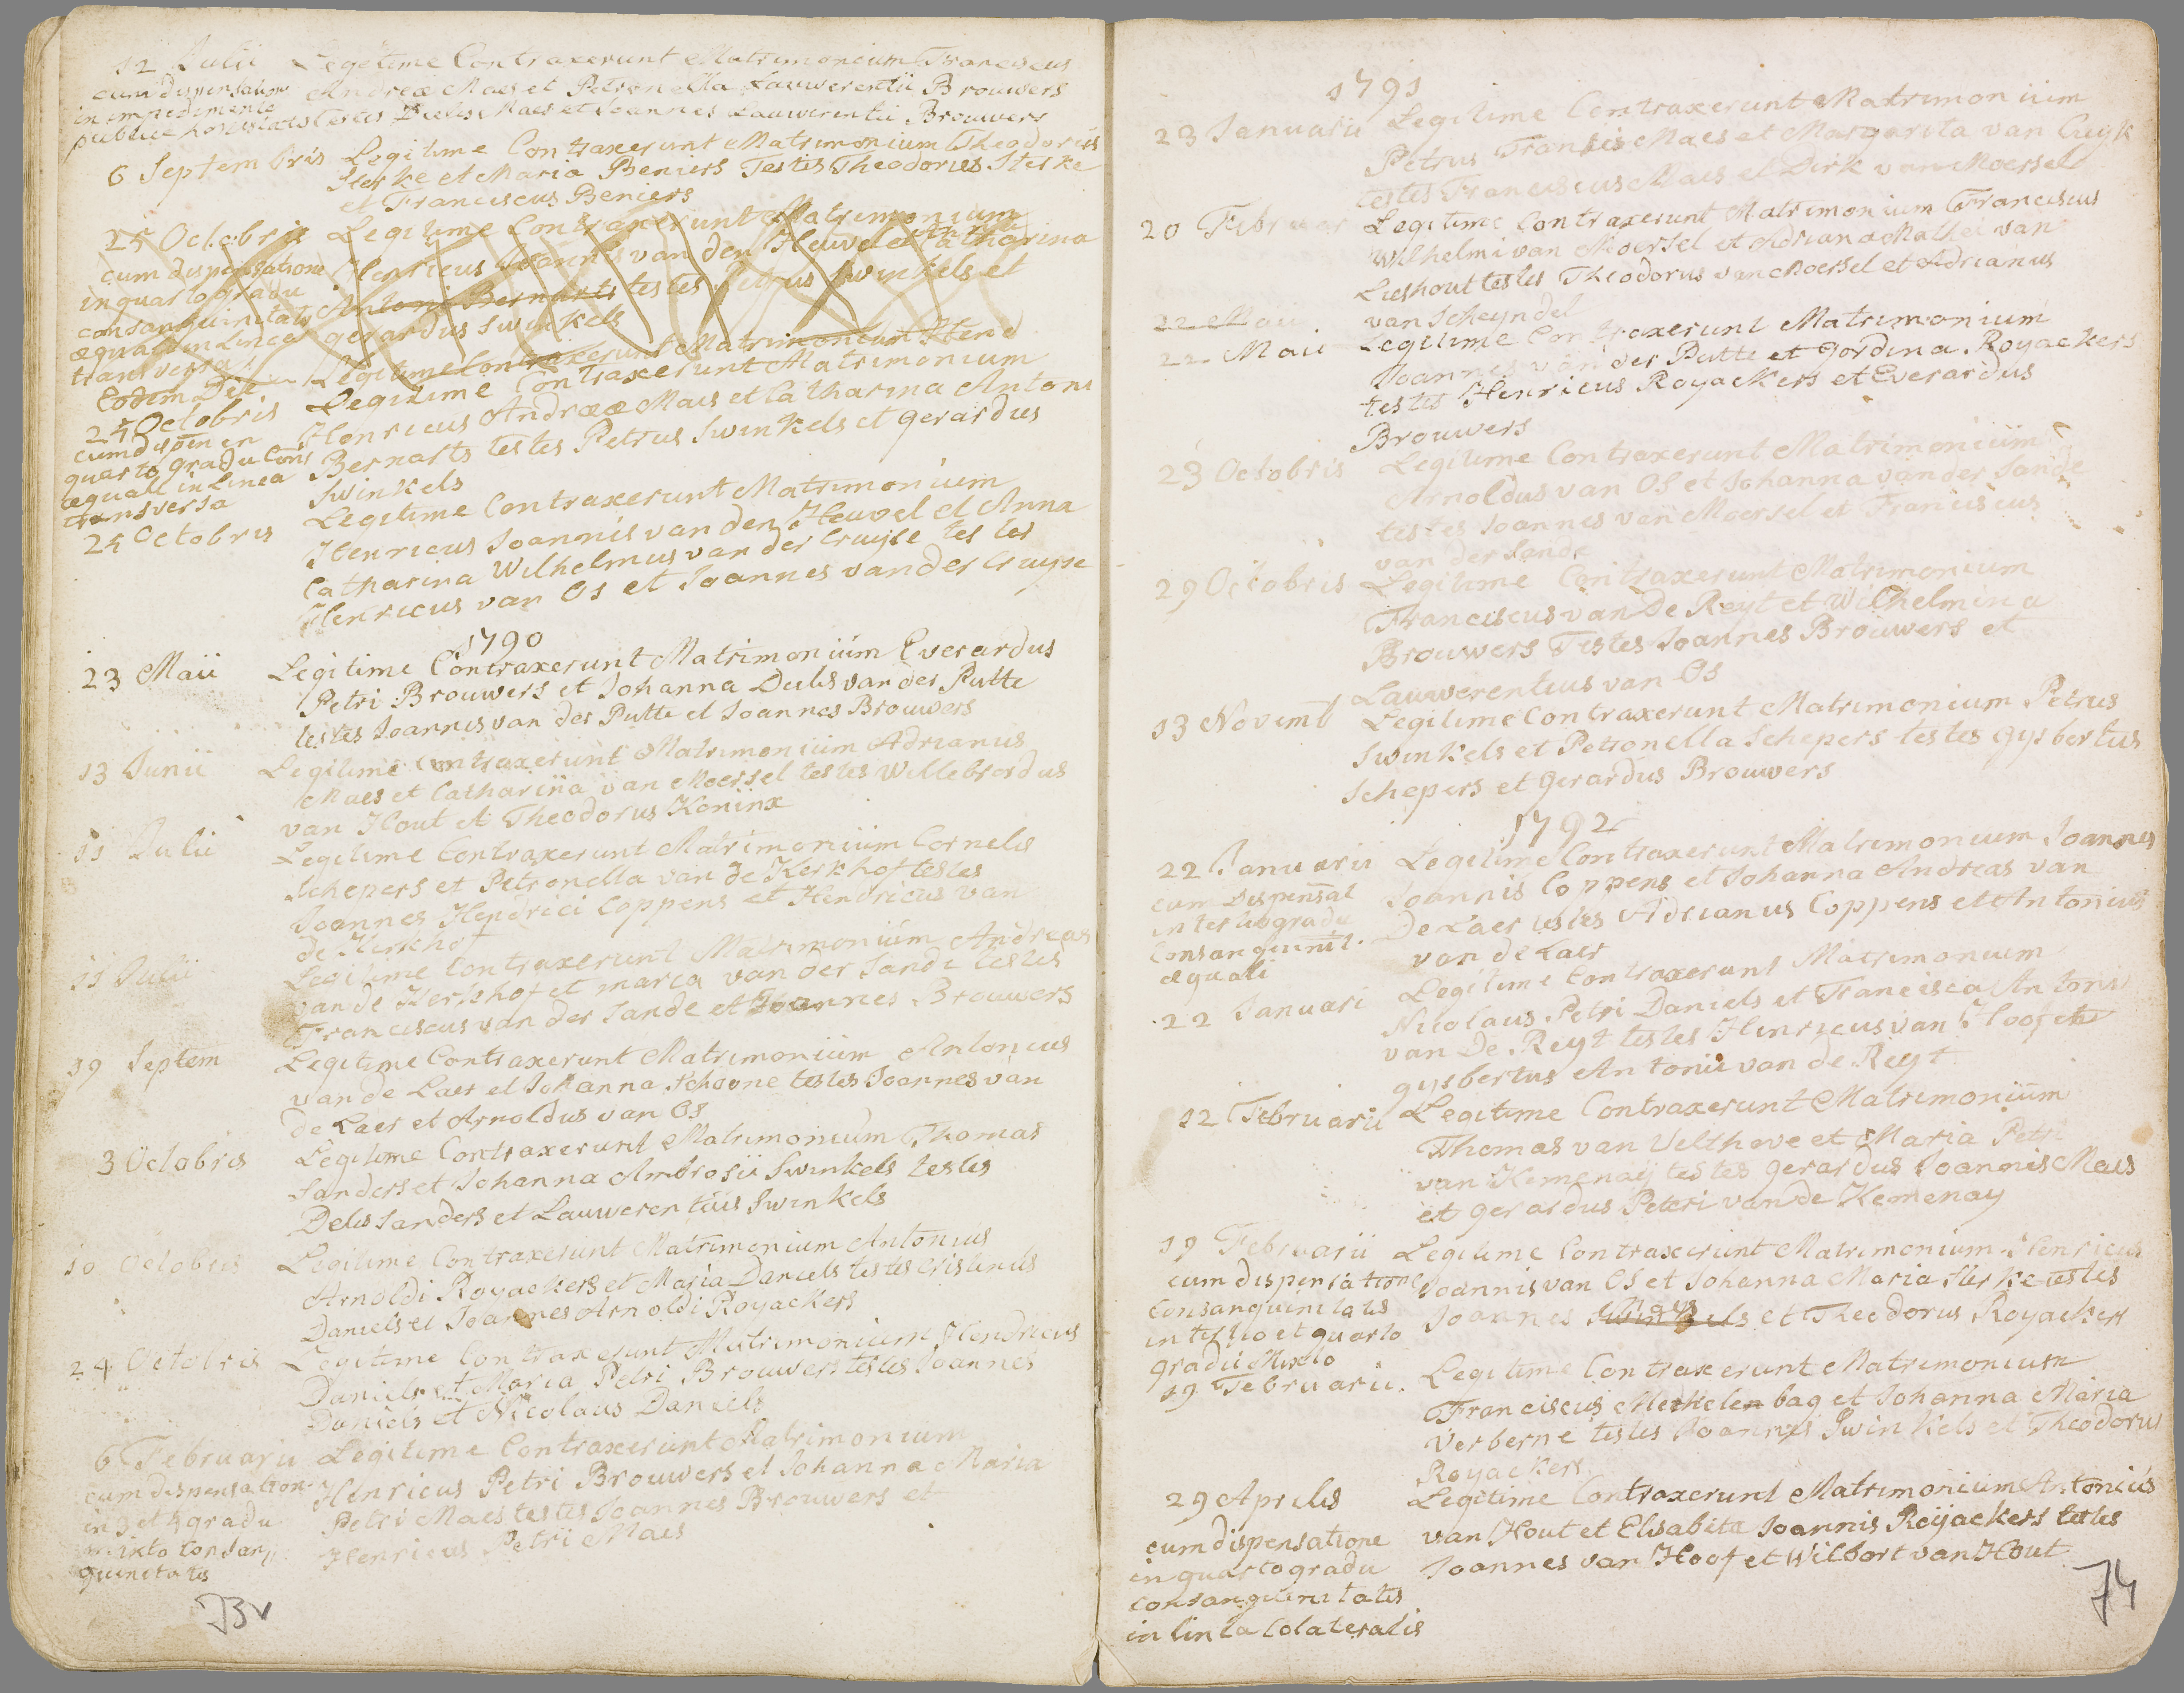 12 Julii Legitime Contraxerunt Matrimonium Franciscus
cum dispensatione Andreæ Maes et Petronella Lauwerentii Brouwers
in impedimento
publicæ honestatis testes Dielis Maes et Joannes Lauwerentii Brouwers
6 Septembris Legitime Contraxerunt Matrimonium Theodorus
Sterke et Maria Beniers Testes Theodorus Sterke
et Franciscus Beniers
25 Octobris Legitime Contraxerunt Matrimonium
cum dispensatione Henricus Joannis van den Heuvel et Catharina
in quarto gradu Antoni Bernarts testes Petrus Swinkels et
consanguinitatis gerardus Swinkels
æquali in Linea
transversa
Eodem Die Legitime Contraxerunt Matrimonium Hend
25 Octobris Legitime Contraxerunt Matrimonium
cum disp in Henricus Andreæ Maes et Catharina Antoni
quarto gradu Cons Bernarts testes Petrus Swinkels et gerardus
æquali in Linea Swinkels
transversa
25 Octobris Legitime Contraxerunt Matrimonium
Henricus Joannis van den Heuvel et Anna
Catharina Wilhelmus van der Cruyse testes
Henricus van Os et Joannes van der Cruyse
1790
23 Maii Legitime Contraxerunt Matrimonium Everardus
Petri Brouwers et Johanna Delis van der Putte
testes Joannis van der Putte et Joannes Brouwers
13 Junii Legitime Contraxerunt Matrimonium Adrianus
Maes et Catharina van Moersel testes Willebrordus
van Hout et Theodorus Koninx
11 Julii Legitime Contraxerunt Matrimonium Cornelis
Schepers et Petronella van de Kerkhof testes
Joannes Hendrici Coppens et Hendricus van
de Kerkhof
11 Julii Legitime Contraxerunt Matrimonium Andreas
van de Kerkhof et maria van der Sande testes
Franciscus van der Sande et Joannes Brouwers
19 Septem Legitime Contraxerunt Matrimonium Antonius
van de Laer et Johanna Schoone testes Joannes van
de Laer et Arnoldus van Os
3 Octobris Legitime Contraxerunt Matrimonium Thomas
Sanders et Johanna Ambrosii Swinkels testes
Delis Sanders et Lauwerentius Swinkels
10 Octobris Legitime Contraxerunt Matrimonium Antonius
Arnoldi Royackers et Maria Daniels testes Cristinus
Daniels et Joannes Arnoldi Royackers
24 Octobris Legitime Contraxerunt Matrimonium Hendricus
Daniels et Maria Petri Brouwers testes Joannes
Daniels et Nicolaus Daniels
6 Februarii Legitime Contraxerunt Matrimonium
cum dispensation Henricus Petri Brouwers et Johanna Maria
in 3 et 4 gradu Petri Maes testes Joannes Brouwers et
mixto Consan// Henricus Petri Maes
guinitatis
73v
1791
23 Januarii Legitime Contraxerunt Matrimonium
Petrus Francis Maes et Margarita van Cuyk
testes Franciscus Maes et Dirk van Moersel
20 Februar Legitime Contraxerunt Matrimonium Franciscus
Wilhelmi van Moersel et Adriana Mathei van
Lieshout testes Theodorus van Moersel et Adrianus
22 Maii van Scheyndel
22 Maii Legitime Contraxerunt Matrimonium
Joannes van der Putte et Gordina Royackers
testes Henricus Royackers et Everardus
Brouwers
23 Octobris Legitime Contraxerunt Matrimonium
Arnoldus van Os et Johanna van der Sande
testes Joannes van Moersel et Franciscus
van der Sande
29 Octobris Legitime Contraxerunt Matrimonium
Franciscus van De Reyt et Wilhelmina
Brouwers Testes Joannes Brouwers et
Lauwerentius van Os
13 Novemb Legitime Contraxerunt Matrimonium Petrus
Swinkels et Petronella Schepers testes gysbertus
Schepers et gerardus Brouwers
1792
22 Januarii Legitime Contraxerunt Matrimonium Joannes
cum Dispensat Joannis Coppens et Johanna Andreas van
in tertio gradu De Laer testes Adrianus Coppens et Antonius
Consanguinit. van de Laer
æquali
22 Januari Legitime Contraxerunt Matrimonium
Nicolaus Petri Daniels et Francisca Antonii
van De Reyt testes Henricus van Hoof et
gysbertus Antonii van de Reyt
12 Februarii Legitime Contraxerunt Matrimonium
Thomas van Velthove et Maria Petri
van Kemenay testes gerardus Joannis Maes
et gerardus Peteri van de Kemenay
19 Februarii Legitime Contraxerunt Matrimonium Henricus
cum dispensatione Joannis van Os et Johanna Maria Sterke testes
Consanguinitatis Joannes Swinkels Maes et Theodorus Royackers
in tertio et quarto
gradu Mixto
19 Februarii. Legitime Contraxerunt Matrimonium
Franciscus Merkelenbag et Johanna Maria
Verberne testes Joannes Swinkels et Theodorus
Royackers
29 Aprilis Legitime Contraxerunt Matrimonium Antonius
cum dispensatione van Hout et Elisabita Joannis Roijackers testes
in quarto gradu Joannes van Hoof et Wilbort van Hout
consanguinitatis
in linea Colateralis
74